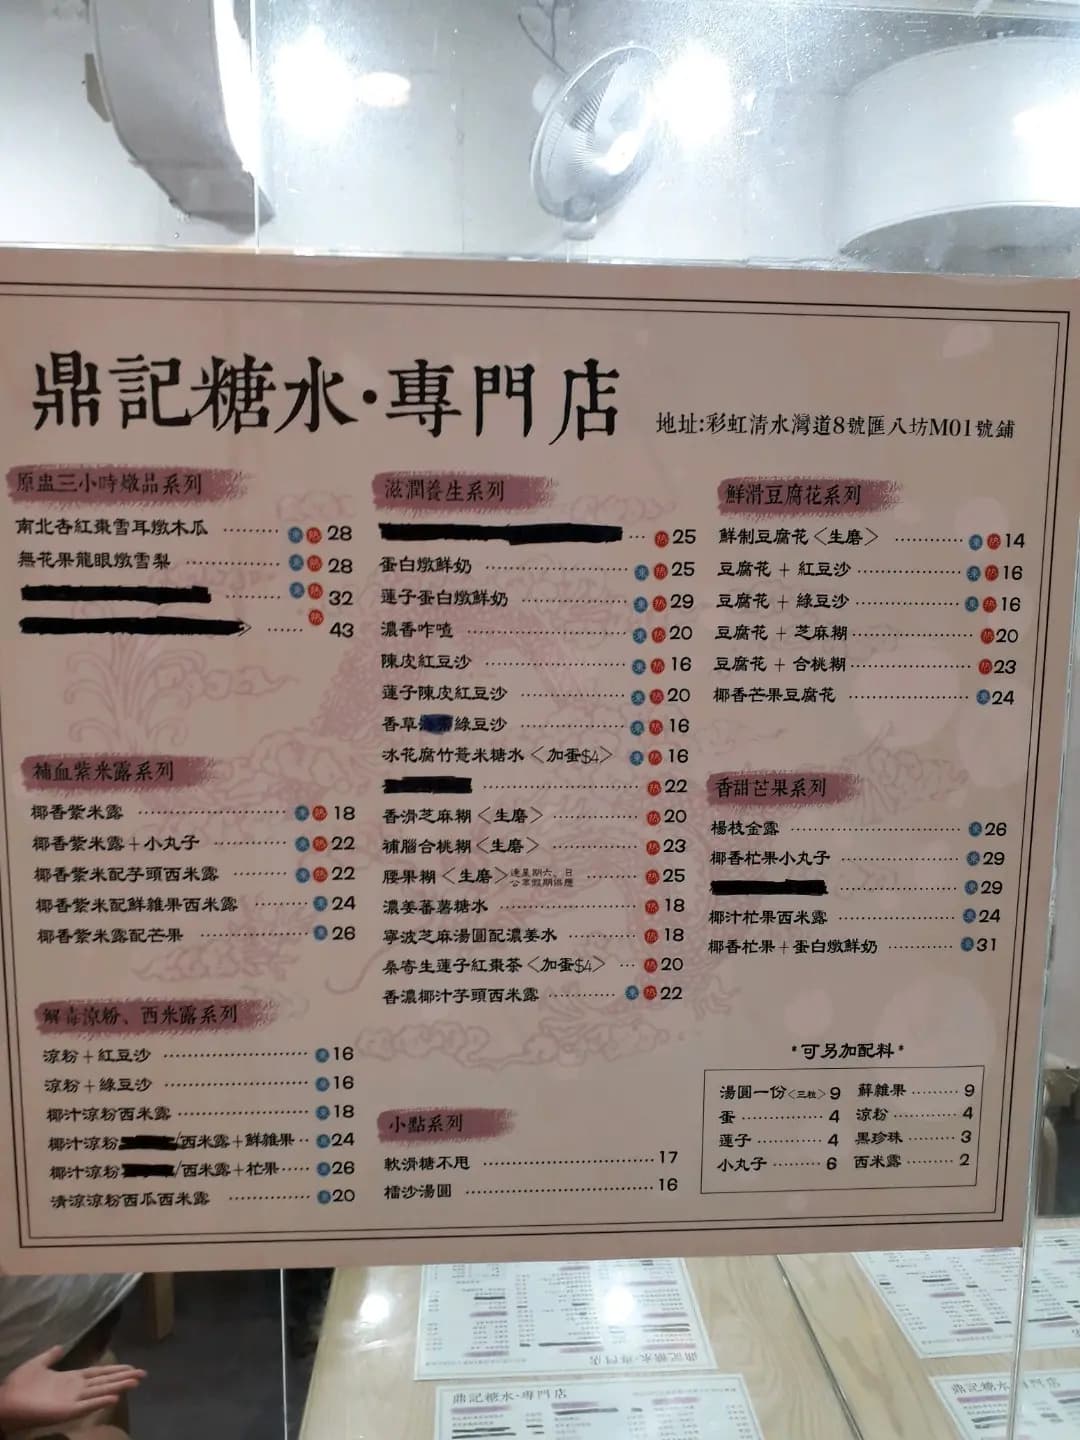 鼎記糖水·專門店
地址:彩虹清水灣道8號匯八坊M01號鋪
原盅三小時燉品系列
南北杏紅棗雪耳燉木瓜 凍 熱 28
無花果龍眼燉雪梨 凍 熱 28
凍 熱 32
熱 43
補血紫米露系列
椰香紫米露 凍 熱 18
椰香紫米露+小丸子 凍 熱 22
椰香紫米配芋頭西米露 凍 熱 22
椰香紫米配鮮雜果西米露 凍 24
椰香紫米露配芒果 凍 26
解毒涼粉、西米露系列
涼粉+紅豆沙 凍 16
涼粉+綠豆沙 凍 16
椰汁涼粉西米露 凍 18
椰汁涼粉 /西米露+鮮雜果 凍 24
椰汁涼粉 /西米露+杧果 凍 26
清涼涼粉西瓜西米露 凍 20
滋潤養生系列
熱 25
蛋白燉鮮奶 凍 熱 25
蓮子蛋白燉鮮奶 凍 熱 29
濃香咋喳 凍 熱 20
陳皮紅豆沙 凍 熱 16
蓮子陳皮紅豆沙 凍 熱 20
香草 綠豆沙 凍 熱 16
冰花腐竹薏米糖水<加蛋$4> 凍 熱 16
熱 22
香滑芝麻糊<生磨> 熱 20
補腦合桃糊<生磨> 熱 23
腰果糊<生磨>逢星期六、日公眾假期供應 熱 25
濃姜蕃薯糖水 熱 18
寧波芝麻湯圓配濃姜水 熱 18
桑寄生蓮子紅棗茶<加蛋$4> 熱 20
香濃椰汁芋頭西米露 凍 熱 22
小點系列
軟滑糖不甩 17
擂沙湯圓 16
鮮滑豆腐花系列
鮮制豆腐花<生磨> 凍 熱 14
豆腐花+紅豆沙 凍 熱 16
豆腐花+綠豆沙 凍 熱 16
豆腐花+芝麻糊 熱 20
豆腐花+合桃糊 熱 23
椰香芒果豆腐花 凍 24
香甜芒果系列
楊枝金露 凍 26
椰香杧果小丸子 凍 29
凍 29
椰汁杧果西米露 凍 24
椰香杧果+蛋白燉鮮奶 凍 31
*可另加配料*
湯圓一份<三粒> 9 蘇雜果 9
蛋 4 涼粉 4
蓮子 4 黑珍珠 3
小丸子 6 西米露 2
鼎記糖水·專門店
鼎記糖水·專門店